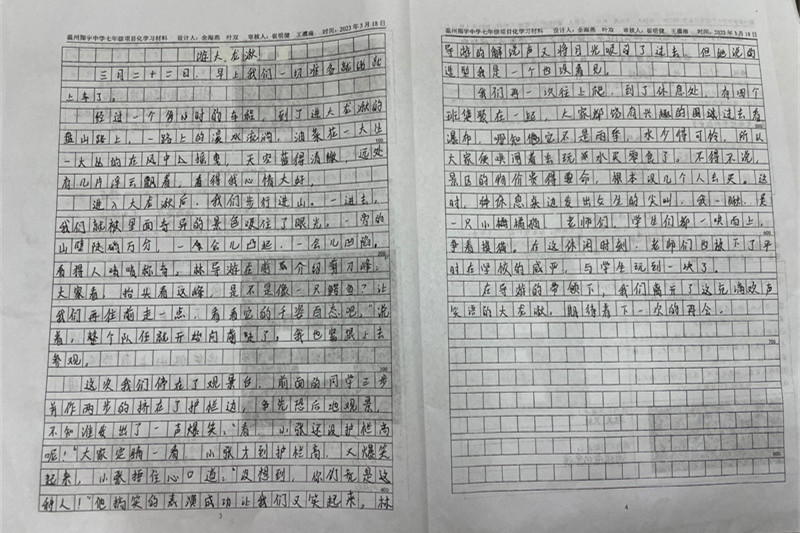 温州翔宇中学七年级项目化学习材料 设计人：余海燕 叶双 审核人：崔明健 王灌南 时间：2023年3月18日
游大龙湫
三月二十二日，早上我们一切准备就绪就
上车了。
经过一个多小时的车程，到了进大龙湫的
盘山路上，一路上的溪水流淌，油菜花一大丛
一大丛的在风中摇曳，天空蓝得清澈，远处
有几片浮云飘着，看得我心情大好。
进入大龙湫后，我们步行进山。一进去，
我们就被里面奇异的景色吸住了眼光。一旁的
山壁陡峭万分，一会儿凸起，一会儿凹陷，
看得人啧啧称奇。林导游在前介绍剪刀峰：
大家看，抬头看这峰，是不是像一只鳄鱼？让
我们再往前走一点，看看它的千姿百态吧。”说
着，整个队伍就开始向前进了，我也紧跟上去
参观。
这次我们停在了观景台，前面的同学三步
并作两步的挤在了护栏边，争先恐后地观景，
不知谁发出了一声爆笑：“看，小张还没护栏高
呢！”大家定睛一看，小张才到护栏高，又爆笑
起来，小张捶住心口道：“没想到，你们竟是这
种人！”他搞笑的表演成功让我们又笑起来。林
3
温州翔宇中学七年级项目化学习材料 设计人：余海燕 叶双 审核人：崔明健 王灌南 时间：2023年3月18日
导游的解说声又将目光吸引了过去，但她说的
造型我是一个也没看见。
我们再一次往上爬，到了休息处，有四个
班集聚在一起，大家都饶有兴趣的围过去看
瀑布，哪知他它不是雨季，水少得可怜，所以
大家便哄闹着去玩溪水买零食了。不得不说，
景区的物价贵得要命，根本没几个人去买。这
时，科休息来边发出女生的尖叫，我一瞅，是
一只小橘猫，老师们，学生们都一哄而上，
争着摸猫。在这休闲时刻，老师们也放下了平
时在学校的威严，与学生玩到一块了。
在导游的带领下，我们离开了这充满欢声
笑语的大龙湫，期待着下一次的再会。
4